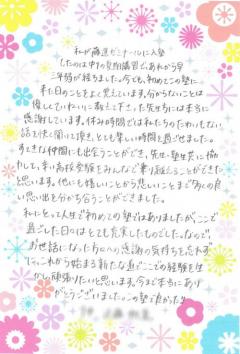 私が藤進ゼミナールに入塾
したのは中1の夏期講習で、あれから早
三年弱が経ちました。今でも、初めてこの塾に
来た日のことをよく覚えています。分からないことは
優しくていねいに教えて下さった先生方には本当に
感謝しています。休み時間では私たちのたわいもない
話を快く聞いて頂き、とても楽しい時間を過ごせました。
すてきな仲間にも出会うことができ、先生・塾生共に協力
して、辛い高校受験をみんなで乗り越えることができたと
思います。他にも嬉しいことから悲しいことまで多くの良
い思い出を分かち合うことができました。
私にとって人生で初めての塾ではありましたが、ここで
過ごした日々はとても充実したものでした。なので、
お世話になった方々への感謝の気持ちを忘れず
に、これから始まる新たな道でここでの経験を生
かし頑張りたいと思います。今まで本当にあり
がとうございました。この塾で良かった!!